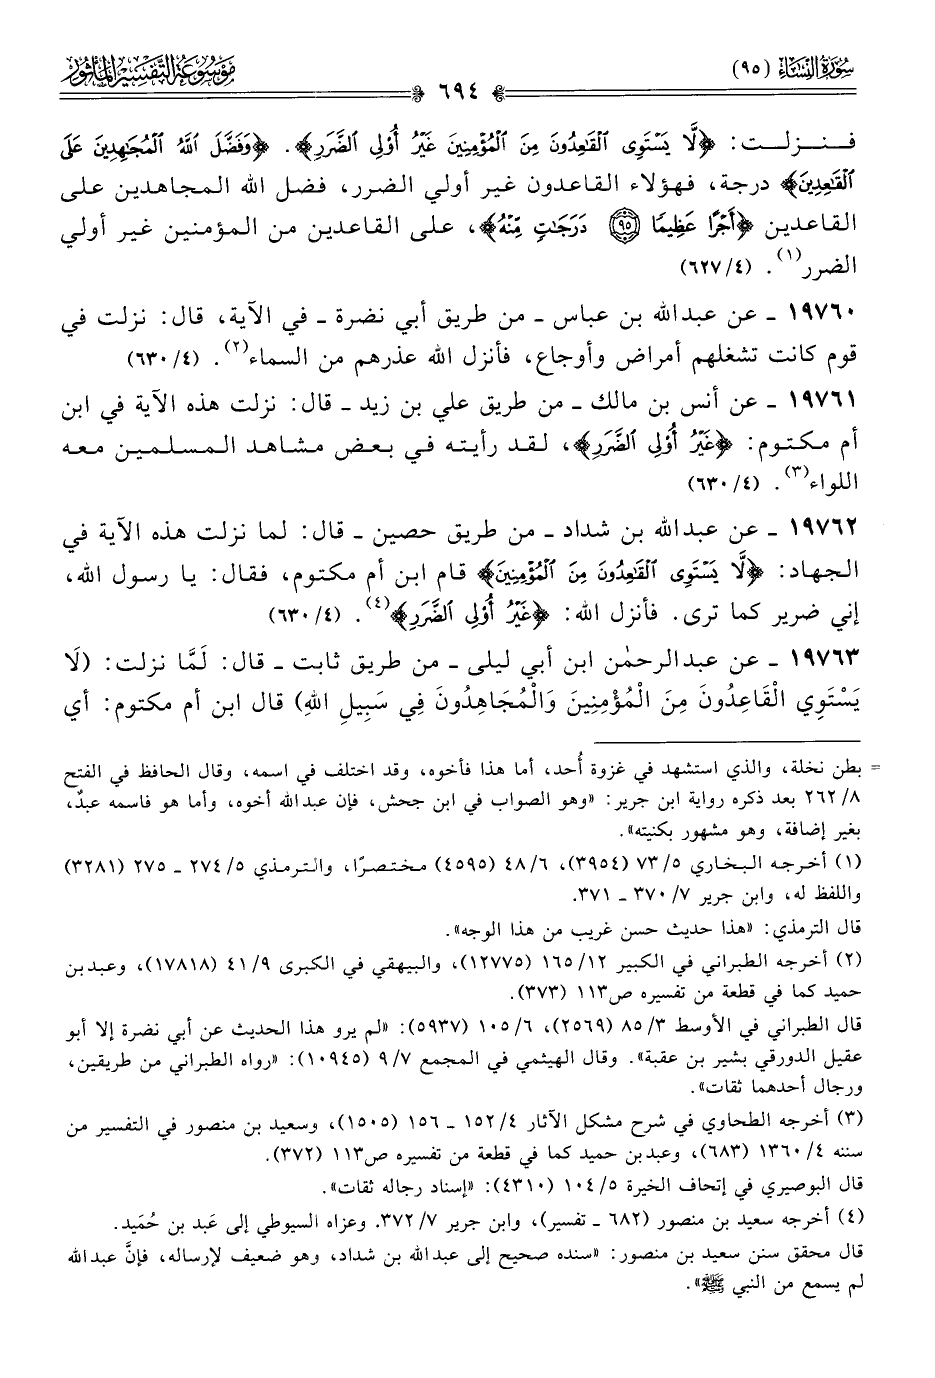 سُورَةُ النِّسَاءِ (٩٥)
مَوْسُوعَةُ التَّفْسِيرِ المَأْثُور
٦٩٤
فـنـزلـت: ﴿لَّا يَسْتَوِى ٱلْقَٰعِدُونَ مِنَ ٱلْمُؤْمِنِينَ غَيْرُ أُو۟لِى ٱلضَّرَرِ﴾. ﴿وَفَضَّلَ ٱللَّهُ ٱلْمُجَٰهِدِينَ عَلَى
ٱلْقَٰعِدِينَ﴾ درجة، فهؤلاء القاعدون غير أولي الضرر، فضل الله المجاهدين على
القاعدين ﴿أَجْرًا عَظِيمًا ٩٥ دَرَجَٰتٍ مِّنْهُ﴾، على القاعدين من المؤمنين غير أولي
الضرر(١). (٤/ ٦٢٧)
١٩٧٦٠ ـ عن عبدالله بن عباس ـ من طريق أبي نضرة ـ في الآية، قال: نزلت في
قوم كانت تشغلهم أمراض وأوجاع، فأنزل الله عذرهم من السماء(٢). (٤/ ٦٣٠)
١٩٧٦١ ـ عن أنس بن مالك ـ من طريق علي بن زيد ـ قال: نزلت هذه الآية في ابن
أم مكتوم: ﴿غَيْرُ أُو۟لِى ٱلضَّرَرِ﴾، لقد رأيته في بعض مشاهد المسلمين معه
اللواء(٣). (٤/ ٦٣٠)
١٩٧٦٢ ـ عن عبدالله بن شداد ـ من طريق حصين ـ قال: لما نزلت هذه الآية في
الجهاد: ﴿لَّا يَسْتَوِى ٱلْقَٰعِدُونَ مِنَ ٱلْمُؤْمِنِينَ﴾ قام ابن أم مكتوم، فقال: يا رسول الله،
إني ضرير كما ترى. فأنزل الله: ﴿غَيْرُ أُو۟لِى ٱلضَّرَرِ﴾(٤). (٤/ ٦٣٠)
١٩٧٦٣ ـ عن عبدالرحمٰن ابن أبي ليلى ـ من طريق ثابت ـ قال: لَمَّا نزلت: (لَا
يَسْتَوِي الْقَاعِدُونَ مِنَ الْمُؤْمِنِينَ وَالْمُجَاهِدُونَ فِي سَبِيلِ اللهِ) قال ابن أم مكتوم: أي
= بطن نخلة، والذي استشهد في غزوة أُحد، أما هذا فأخوه، وقد اختلف في اسمه، وقال الحافظ في الفتح
٨/ ٢٦٢ بعد ذكره رواية ابن جرير: «وهو الصواب في ابن جحش، فإن عبدالله أخوه، وأما هو فاسمه عبدٌ،
بغير إضافة، وهو مشهور بكنيته».
(١) أخرجه البخاري ٥/ ٧٣ (٣٩٥٤)، ٦/ ٤٨ (٤٥٩٥) مختصرًا، والترمذي ٥/ ٢٧٤ ـ ٢٧٥ (٣٢٨١)
واللفظ له، وابن جرير ٧/ ٣٧٠ ـ ٣٧١.
قال الترمذي: «هذا حديث حسن غريب من هذا الوجه».
(٢) أخرجه الطبراني في الكبير ١٢/ ١٦٥ (١٢٧٧٥)، والبيهقي في الكبرى ٩/ ٤١ (١٧٨١٨)، وعبدبن
حميد كما في قطعة من تفسيره ص١١٣ (٣٧٣).
قال الطبراني في الأوسط ٣/ ٨٥ (٢٥٦٩)، ٦/ ١٠٥ (٥٩٣٧): «لم يرو هذا الحديث عن أبي نضرة إلا أبو
عقيل الدورقي بشير بن عقبة». وقال الهيثمي في المجمع ٧/ ٩ (١٠٩٤٥): «رواه الطبراني من طريقين،
ورجال أحدهما ثقات».
(٣) أخرجه الطحاوي في شرح مشكل الآثار ٤/ ١٥٢ ـ ١٥٦ (١٥٠٥)، وسعيد بن منصور في التفسير من
سننه ٤/ ١٣٦٠ (٦٨٣)، وعبدبن حميد كما في قطعة من تفسيره ص١١٣ (٣٧٢).
قال البوصيري في إتحاف الخيرة ٥/ ١٠٤ (٤٣١٠): «إسناد رجاله ثقات».
(٤) أخرجه سعيد بن منصور (٦٨٢ ـ تفسير)، وابن جرير ٧/ ٣٧٢. وعزاه السيوطي إلى عَبد بن حُمَيد.
قال محقق سنن سعيد بن منصور: «سنده صحيح إلى عبدالله بن شداد، وهو ضعيف لإرساله، فإنَّ عبدالله
لم يسمع من النبي ﷺ».